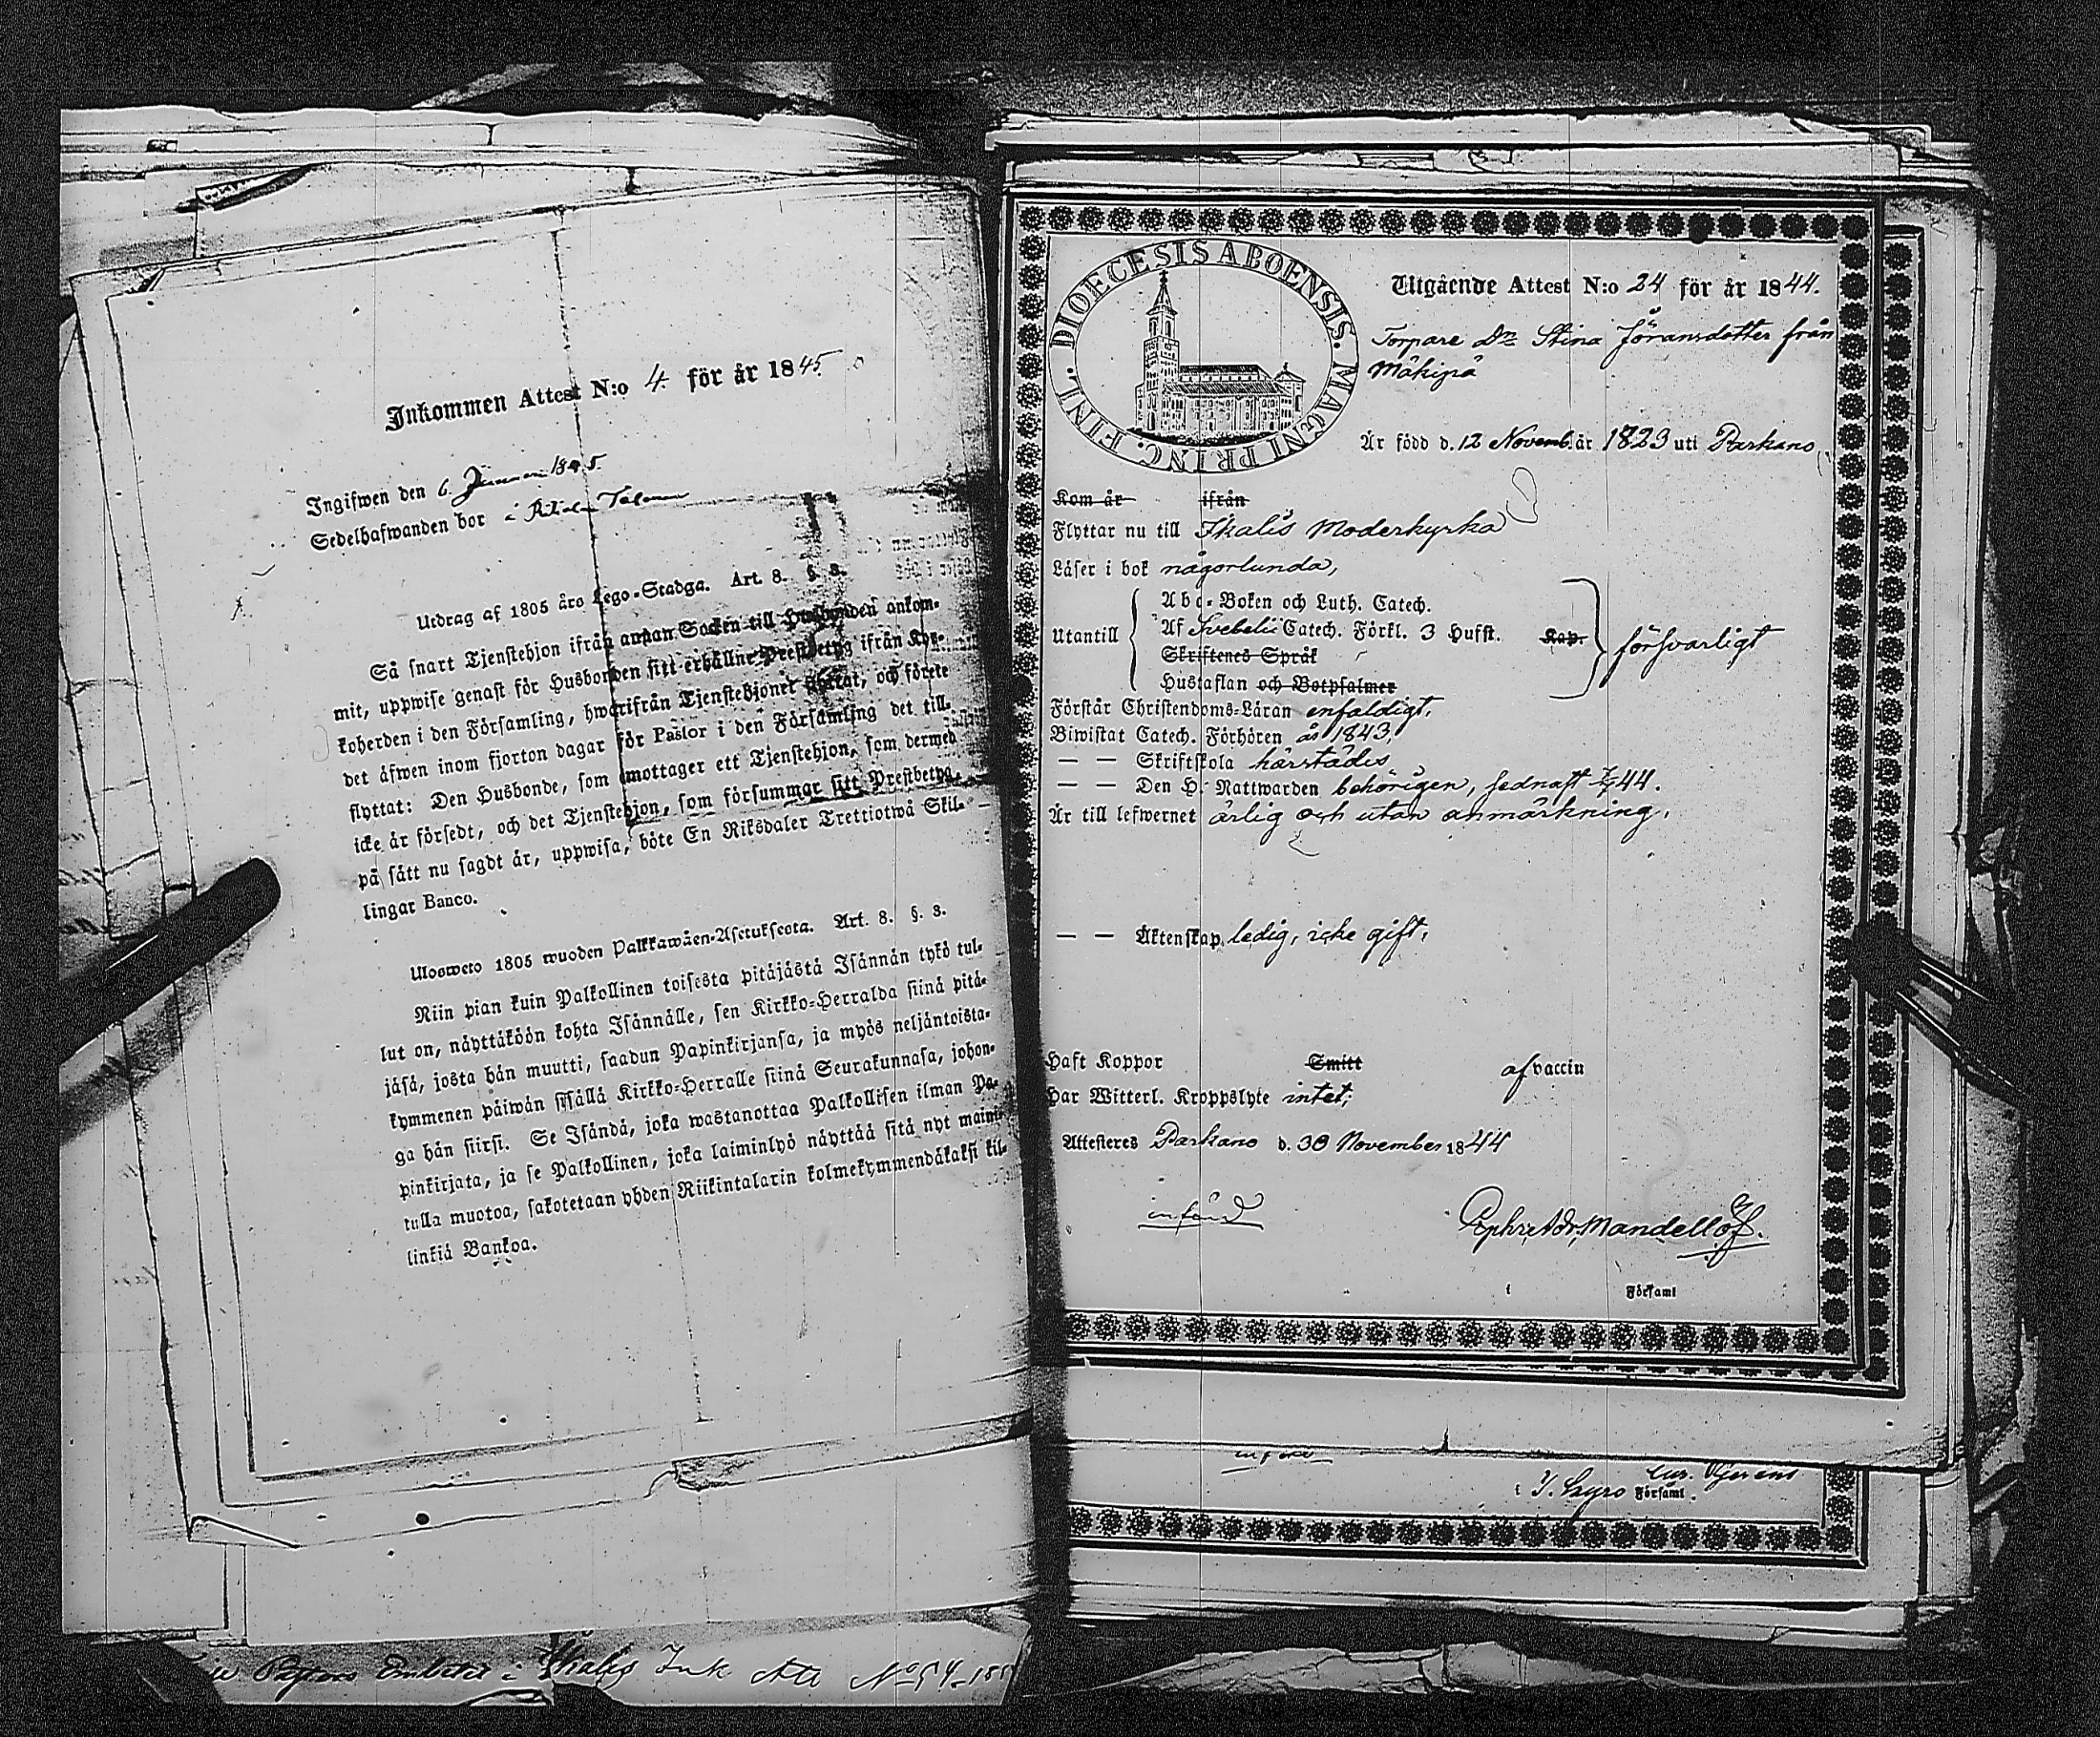 Inkommen Attest N:o 4. för år 1845.
Ingifwen den 6 Januari 1845.
Sedelhafwanden bor i
Utdrag af 1805 års Lego-Stadga. Art. 8. §. 3.
Så snart Tjenstehjon ifrån annan Socken till Husbonden ankom-
mit, uppwise genast för Husbonden sitt erhållne Prestbetyg ifrån Kyr-
koherden i den Församling, hwarifrån Tjenstehjonet flyttat, och förete
det äfwen inom fjorton dagar för Pastor i den Församling det till-
flyttat: Den Husbonde, som emottager ett Tjenstehjon, som dermed
icke är försedt, och det Tjenstehjon, som försummar sitt Prestbetyg,
på sätt nu sagdt är, uppwisa, böte En Riksdaler Trettiotwå Skil-
lingar Banco.
Ulosweto 1805 wuoden Palkkawäen-Asetuksesta. Art. 8. §. 3.
Niin pian kuin Palkollinen toisesta pitäjästä Isännän tykö tul-
lut on, näyttäköön kohta Isännälle, sen Kirkko-Herralda siinä pitä-
jäsä, josta hän muutti, saadun Papinkirjansa, ja myös neljäntoista-
kymmenen päiwän sisällä Kirkko-Herralle siinä Seurakunnasa, johon-
ga hän siirsi. Se Isändä, joka wastanottaa Palkollisen ilman Pa-
pinkirjata, ja se Palkollinen, joka laiminlyö näyttää sitä nyt mainit-
tulla muotoa, sakotetaan yhden Riikintalarin kolmekymmendäkaksi kil-
linkiä Bankoa.
Pastors Embetet i Ikalis Ink Att No 54
DIOECESIS ABOENSIS. MAGNI PRINC. FINL.
Utgående Attest N:o 24 för år 1844.
Torpare Dr Stina Jöransdotter från
Mäkipä
Är född d. 12 Novemb. år 1823 uti Parkano
Kom år ifrån
Flyttar nu till Ikalis Moderkyrka
Läser i bok någorlunda,
Abc-Boken och Luth. Catech.
Utantill Af Svebelii Catech. Förkl. 3 Hufst. Kap. försvarligt
Skriftenes Språk
Hustaflan och Botpsalmer
Förstår Christendoms-Läran enfaldigt.
Biwistat Catech. Förhören år 1843,
— — Skriftskola härstädes
— — Den H. Nattwarden behörigen, sednast 44.
Är till lefwernet ärlig och utan anmärkning.
— — Äktenskap ledig, icke gift,
Haft Koppor Smitt af vaccin
Har Witterl. Kroppslyte intet;
Attesteres Parkano d. 30 November 1844
införd
Mandellöf.
i Församl
införd
i Kyro Församl.